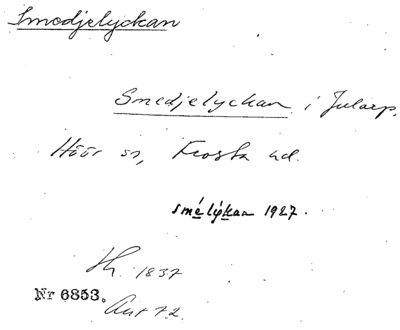 Smedjelyckan
Smedjelyckan i Jularp,
Höör sn, Frosta hd.
smélýkan 1927.
Sk. 1837
Nr 6853.